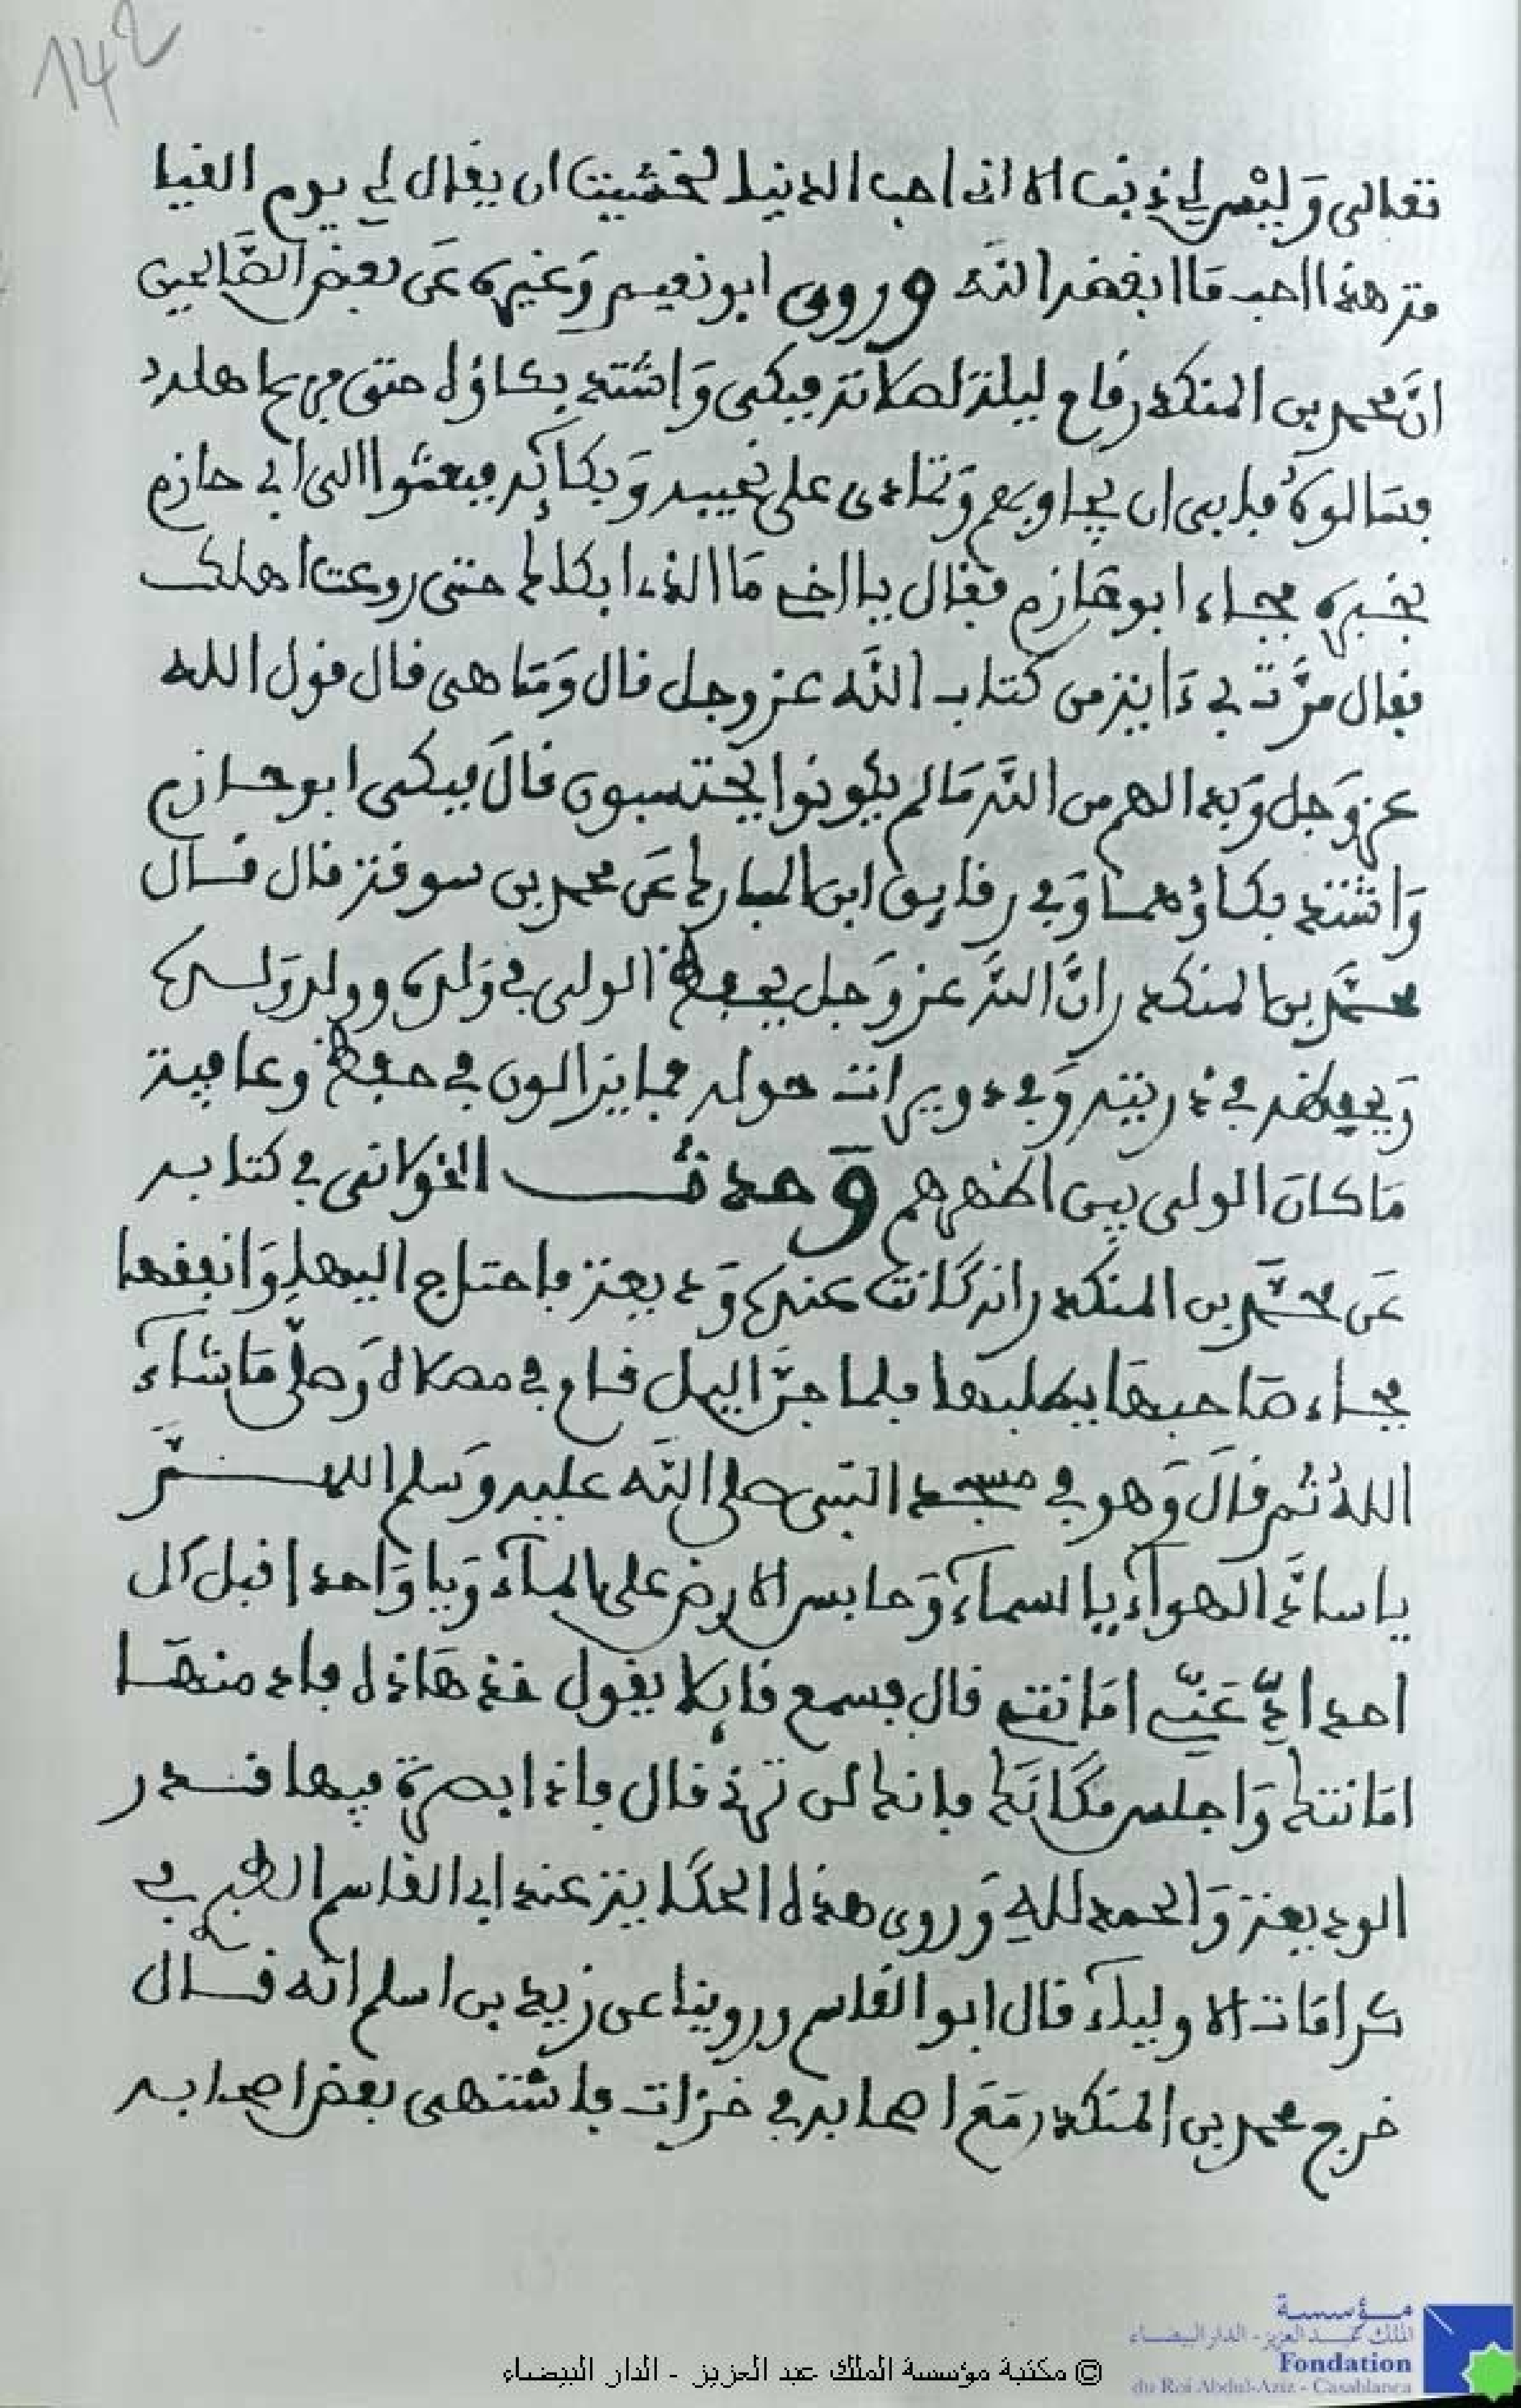 142
تعالى وَليْس لي ذنب الا اني احب الدنيا لخشيت ان يقال لي يوم القيا
مة هذا احب مَا ابغضه اللَّه وروى ابو نعيم وَغيره عَن بعض الصَّالحين
انَّ محمد بن المنكدر قام ليلة لصلاته فبكى وَاشتد بكاؤه حتى فزع اهله
فسَالوهُ فابى ان يجاوبهم وَتمادى على نحيبه وَبكائه فبعثوا الى ابي حازم
بخبره فجاء ابو حَازم فقال يا اخي مَا الذي ابكاك حتى روعت اهلك
فقال مرَّت بي ءَاية من كتاب اللَّه عز وجل قال وَمَا هى قال قول الله
عز وَجل وَبدا لهم من اللَّه مَا لم يكونوا يحتسبون قالَ فبكى ابو حازم
وَاشتد بكاؤهما وَفي رقايق ابن المبارك عَن محمد بن سوقة قال قال
محمَّد بن المنكدر انَّ اللَّه عز وَجل يحفظ الولى في وَلده وولد وَلده
وَيحفظه في ذريته وَفي دويرات حوله فما يزالون في حفظ وعافية
مَا كانَ الولى بين اظهرهم وَحدث الخولانى في كتابه
عَن محمَّد بن المنكدر انه كَانت عنده وَديعة فاحتاج اليها وَانفقها
فجاء صَاحبهَا يطلبها فلما جنَّ اليل قام في مصلاه وَصلَّى مَا شاءَ
اللهُ ثم قالَ وَهو في مسجد النبى صلى اللَّه عليه وَسلم اللهمَّ
يا سادَّ الهوآءِ بالسمآءِ وَحابس الارض على المآءِ وَيا وَاحدا قبل كل
احد ادِّ عَنّي امَانتي قال فسمع قايلا يقول خذ هَاذه فاد منهَا
امَانتك وَاجلس مكَانَك فانك لن ترني قال فاذا بصرة فيها قدر
الوديعة وَالحمد للهِ وَروى هذه الحكَاية عنه ابى القاسم الطبري
كرامَات الاوليآء قال ابو القاسم وروينا عن زيد بن اسلم انه قال
خرج محمد بن المنكدر مَعَ اصحابه في غزات فاشتهى بعض اصحابه
مؤسسة
الملك عبد العزيز - الدار البيضاء
Fondation
du Roi Abdul-Aziz - Casablanca
© مكتبة مؤسسة الملك عبد العزيز - الدار البيضاء